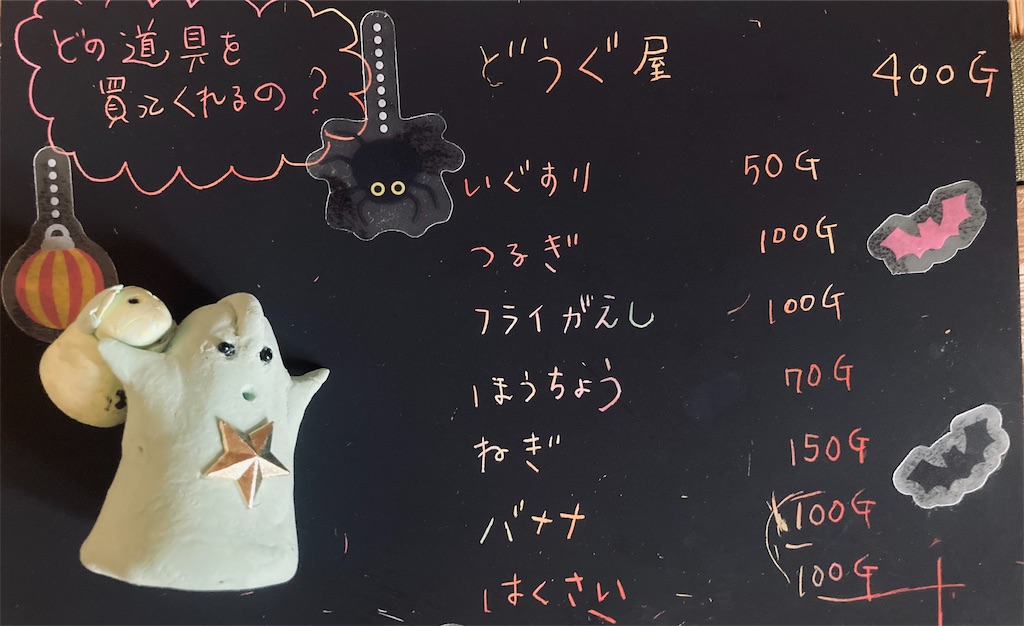 どの道具を
買ってくれるの?
どうぐ屋 400G
いぐすり 50G
つるぎ 100G
フライがえし 100G
ほうちょう 70G
ねぎ 150G
バナナ 100G
はくさい 100G